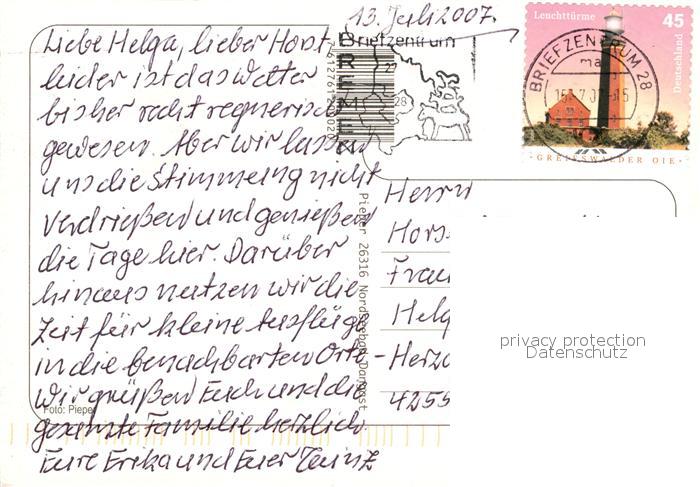 13. Juli 2007.
Liebe Helga, lieber Horst
leider ist das Wetter
bisher recht regnerisch
gewesen. Aber wir lassen
uns die Stimmung nicht
verdrießen und genießen
die Tage hier. Darüber
hinaus nutzen wir die
Zeit für kleine Ausflüge
in die benachbarten Orte -
Wir grüßen Euch und die
gesamte Familie herzlich
Eure Erika und Euer Heinz
Foto: Pieper
Briefzentrum
BREMEN
27
28
Pieper 26316 Nordseebad Dangast
Leuchttürme 45
Deutschland
BRIEFZENTRUM 28
ma
·GREIFSWALDER OIE·
Herrn
Hors
Frau
Helg
Herzo
4255
privacy protection
Datenschutz